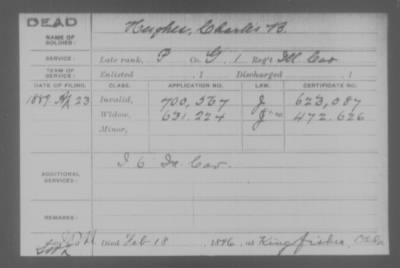 DEAD
NAME OF SOLDIER: Hughes, Charles B.
SERVICE: Late rank, P Co. G, 1 Reg't Ill Cav
TERM OF SERVICE: Enlisted , 1 Discharged , 1
DATE OF FILING. CLASS. APPLICATION NO. LAW. CERTIFICATE NO.
1889 23 Invalid, 700,567 J 623,087
Widow, 631,224 J 472,626
Minor,
ADDITIONAL SERVICES: I 6 Ill Cav.
REMARKS:
Died Feb 18, 1896, at Kingfisher, Okla